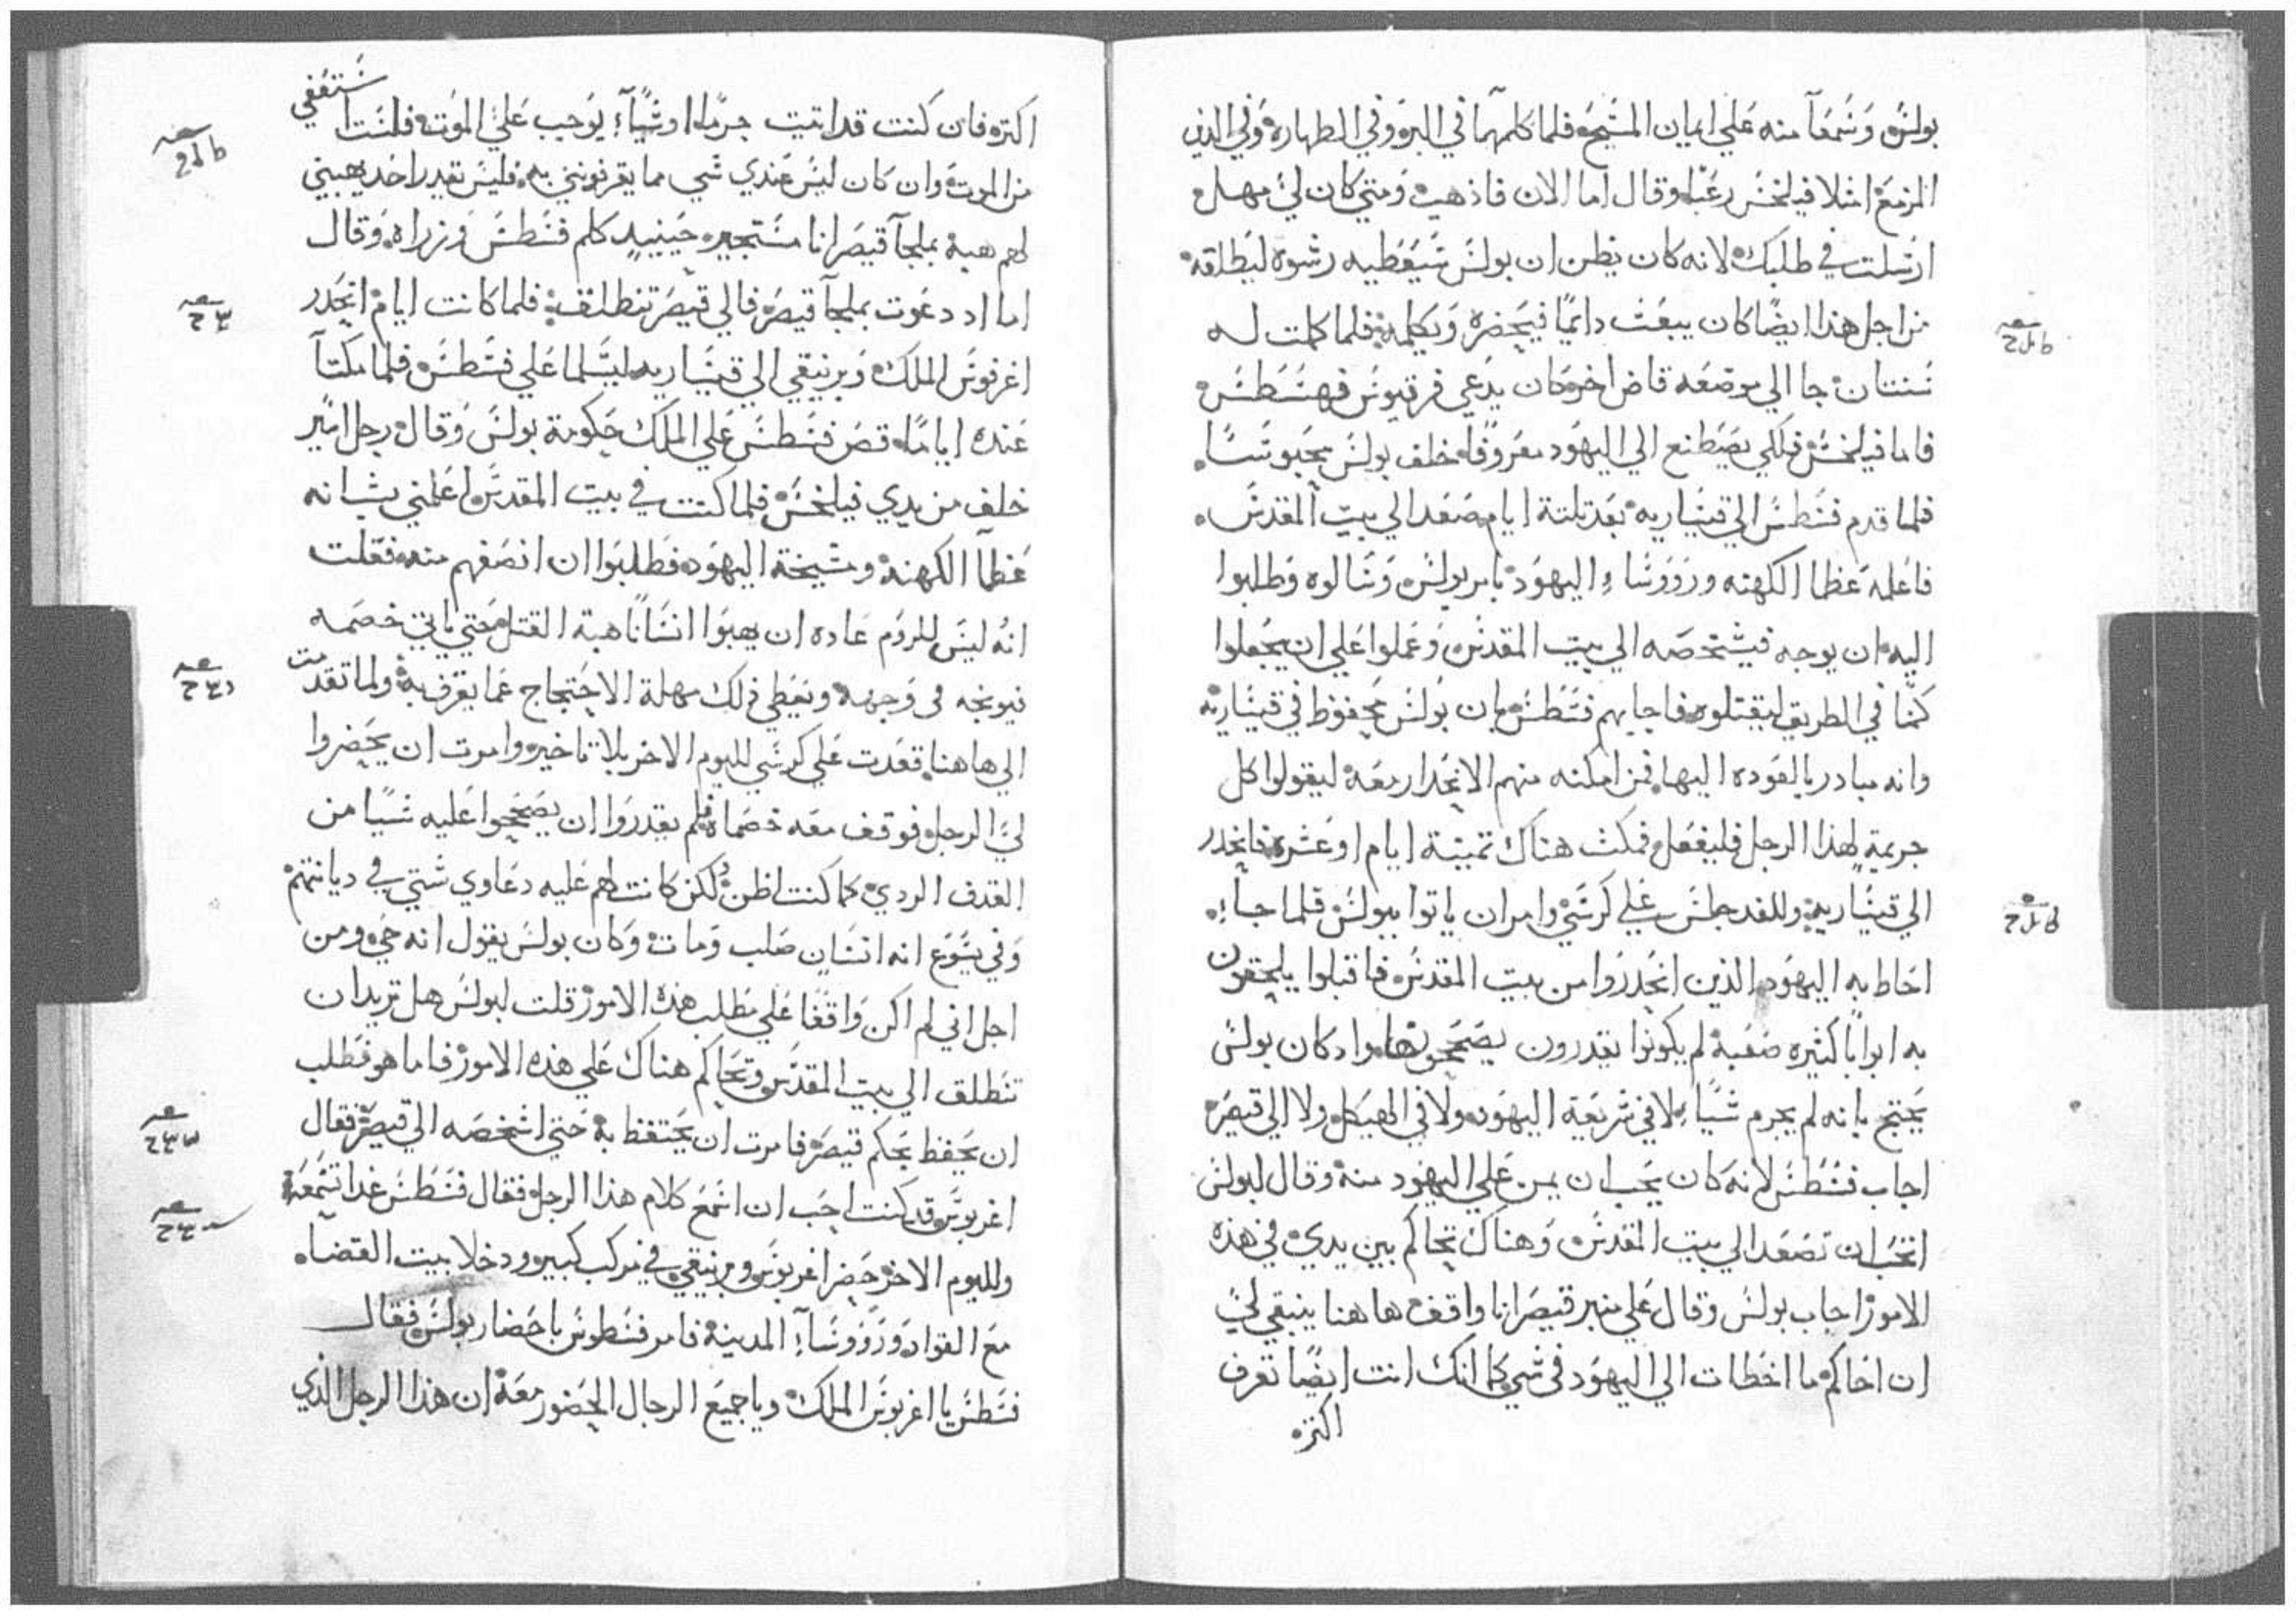 بولس وسمعا منه علي ايمان المسيح فلما كلمهما في البر وفي الطهارة وفي الدين
المزمع امتلا فيلخس رعبا وقال اما الان فاذهب ومتي كان لي مهل
ارسلت في طلبك لانه كان يظن ان بولس سيعطيه رشوه ليطلقه
من اجل هذا ايضا كان يبعث دايما فيحضره ويكلمه فلما كملت له
سنتان جا الي موضعه قاض اخر كان يدعي فرقيوس فهسطس
فاما فيلخس فلكي يصطنع الي اليهود معروفا خلف بولس محبوسا
فلما قدم فسطس الي قيساريه بعد تلتة ايام صعد الي بيت المقدس
فاعلمه عظما الكهنه وروؤساء اليهود بامر بولس وسالوه وطلبوا
اليه ان يوجه فيشخصه الي بيت المقدس وعملوا علي ان يجعلوا
كمنا في الطريق ليقتلوه فاجابهم فسطس بان بولس محفوظ في قيساريه
وانه مبادر بالعوده اليها فمن امكنه منهم الانحدار معه ليقولوا كل
جريمة لهذا الرجل فليفعل فمكث هناك تمنية ايام او عشره فانحدر
الي قيساريه وللغد جلس علي كرسي وامر ان ياتوا ببولس فلما جاء
احاط به اليهود الذين انحدروا من بيت المقدس فاقبلوا يلحقون
به ابوابا كثيره صعبة لم يكونوا يقدرون يصححونها واد كان بولس
يحتج بانه لم يجرم شيا لا في شريعة اليهود ولا في الهيكل ولا الي قيصر
اجاب فسطس لانه كان يحب ان يمن علي اليهود منه وقال لبولس
اتحب ان تصعد الي بيت المقدس وهناك تحاكم بين يدي في هذه
الامور اجاب بولس وقال علي منبر قيصر انا واقف هاهنا ينبغي لي
ان احاكم ما اخطات الي اليهود في شي كما انك انت ايضا تعرف
اكتره
اكتره فان كنت قد اتيت جرما او شياء يوجب علي الموت فلست استعفي
من الموت وان كان ليس عندي شي مما يقرفونني به فليس يقدر احد يهبني
لهم هبة بملجا قيصر انا مستجير حينيد كلم فسطس وزراه وقال
اما اد دعوت بملجا قيصر فالي قيصر تنطلق فلما كانت ايام انحدر
اغرفوس الملك وبرنيقي الي قيساريه ليسلما علي فسطس فلما مكتا
عنده اياما قص فسطس علي الملك حكومة بولس وقال رجل اسير
خلف من يدي فيلخس فلما كنت في بيت المقدس اعلمني بشانه
عظما الكهنه ومشيخة اليهود وطلبوا ان انصفهم منه فقلت
انه ليس للروم عاده ان يهبوا انسانا هبة القتل حتي ياتي خصمه
فيوبخه في وجهه ويعطي ذلك مهلة الاحتجاج عما يقرف به ولما تقدمت
الي هاهنا قعدت علي كرسي لليوم الاخر بلا تاخير وامرت ان يحضروا
لي الرجل فوقف معه خصماه فلم يقدروا ان يصححوا عليه شيا من
القدف الردي كما كنت اظن ولكن كانت لهم عليه دعاوي شتي في ديانتهم
وفي يسوع انه انسان صلب ومات وكان بولس يقول انه حي ومن
اجل اني لم اكن واقفا علي مطلب هذه الامور قلت لبولس هل تريد ان
تنطلق الي بيت المقدس وتحاكم هناك علي هذه الامور فاما هو فطلب
ان يحفظ بحكم قيصر فامرت ان يحتفظ به حتي اشخصه الي قيصر فقال
اغربوس قد كنت احب ان اسمع كلام هذا الرجل فقال فسطس غدا تسمعه
ولليوم الاخر حضر اغربوس وبرنيقي في مركب كبير ودخلا بيت القضاه
مع القواد وروؤساء المدينة فامر فسطوس باحضار بولس فقال
فسطس يا اغربوس الملك ويا جميع الرجال الحضور معه ان هذا الرجل الذي